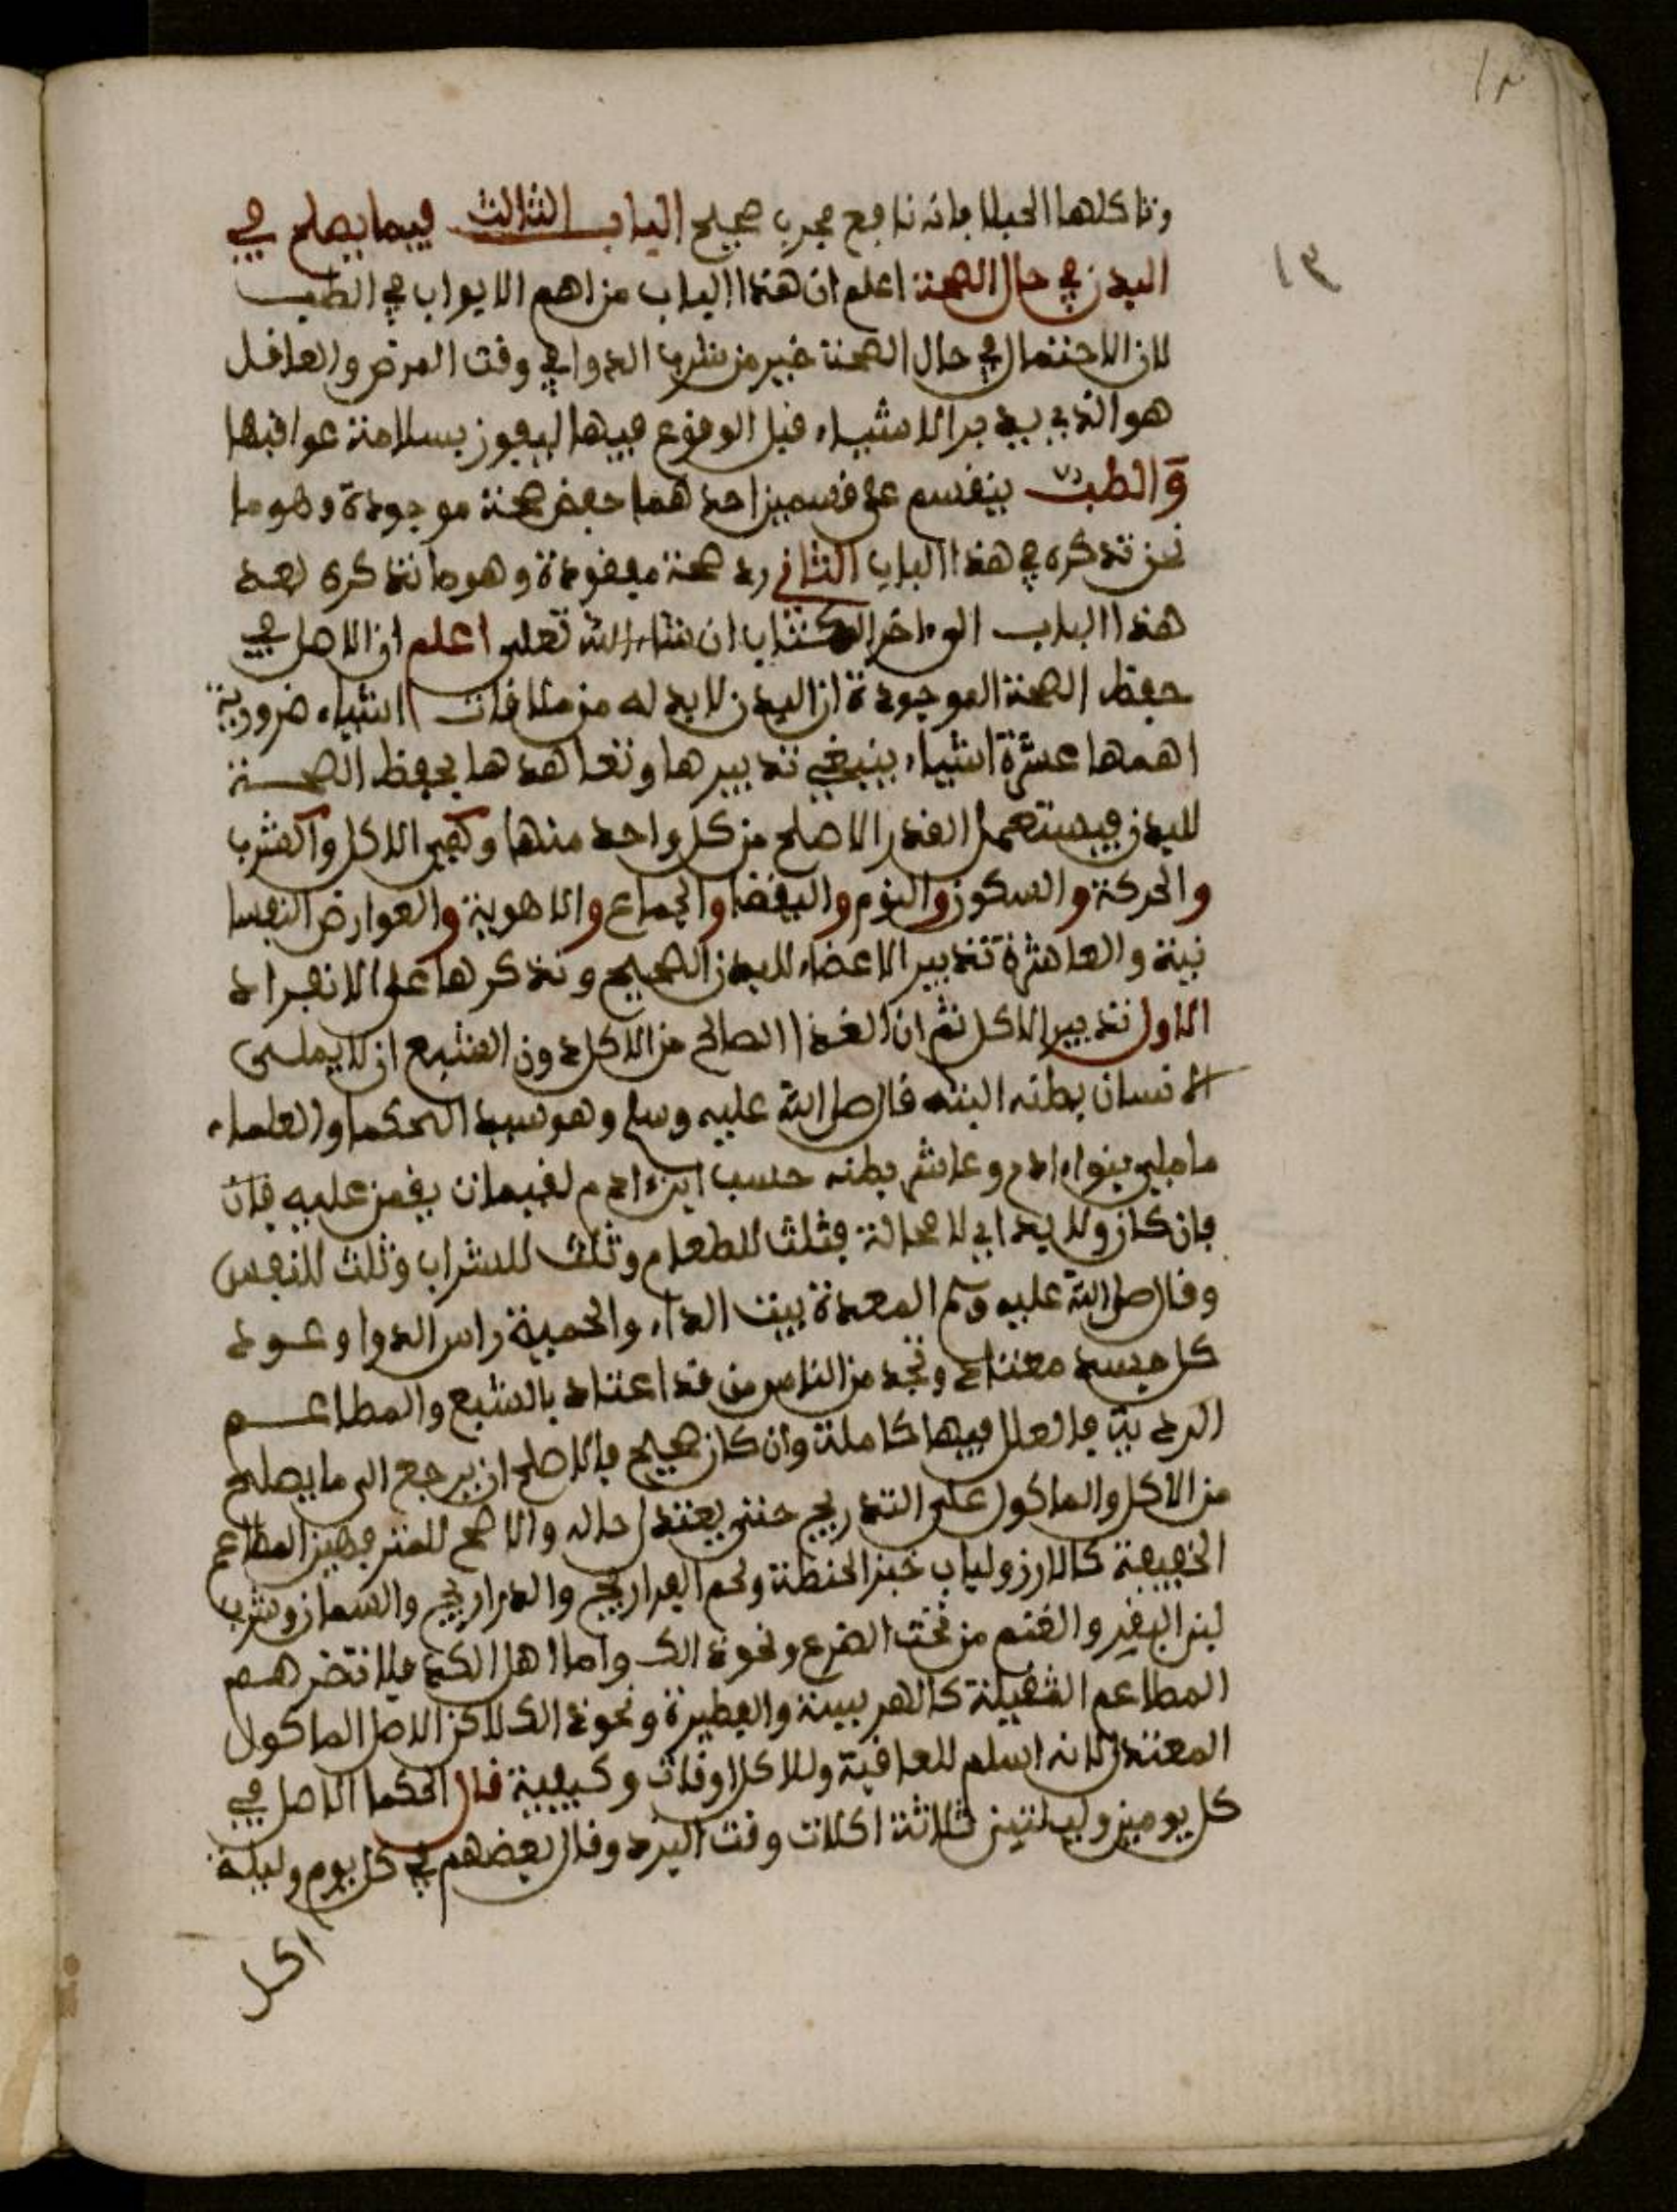 ١٣
وتاكلها الحبلا فانه نافع مجرب صحيح الباب الثالث فيما يصلح في
البدن في حال الصحة اعلم ان هذا الباب من اهم الابواب في الطب
لان الاحتمال في حال الصحة خير من شرب الدوا في وقت المرض والعاقل
هو الذي يدبر الاشياء قبل الوقوع فيها ليفوز بسلامة عواقبها
والطب ينقسم على قسمين احدهما حفض صحة موجودة وهو ما
نحن نذكره في هذا الباب الثاني رد صحة مفقودة وهو ما نذكره بعد
هذا الباب الى ءاخر الكتاب ان شاء الله تعلى اعلم ان الاصل في
حفظ الصحة الموجودة ان البدن لابد له من ملاقات اشياء ضرورية
اهمها عشرة اشياء ينبغي تدبيرها وتعاهدها بحفظ الصحة
للبدن فيستعمل القدر الاصلح من كل واحد منها وهي الاكل والشرب
والحركة والسكون والنوم واليقضا والجماع والاهوية والعوارض النفسا
نية والعاشرة تدبير الاعضاء للبدن الصحيح ونذكرها على الانفراد
الاول تدبير الاكل ثم ان الغذا الصالح من الاكل دون الشبع ان لا يملى
الانسان بطنه البته قال صلى الله عليه وسلم وهو سيد الحكما والعلماء
ما ملى بنوا ءادم وعاشر بطنه حسب ابن ءادم لقيمات يقمن عليه فان
فان كان ولابد ابي لا محالة فثلث للطعام وثلث للشراب وثلث للنفس
وقال صلى الله عليه وسلم المعدة بيت الداء والحمية راس الدوا وعود
كل جسد معتاد وتجد من الناس من قد اعتاد بالشبع والمطاعم
الردية فالعلل فيها كاملة وان كان صحيح فالاصلح ان يرجع الى ما يصلح
من الاكل والماكول على التدريج حتى يعتدل حاله والاصح للمترفهين المطاعم
الخفيفة كالارز ولباب خبز الحنطة ولحم الفراريج والدراريج والسمان وشرب
لبن البقر والغنم من تحت الضرع ونحو ذالك واما اهل الكد فلا تضرهم
المطاعم الثقيلة كالهريسة والفطيرة ونحو ذالك لاكن الاصل الماكول
المعتدل لانه اسلم للعافية وللاكل اوقات وكيفية قال الحكما الاصل في
كل يومين وليلتين ثلاثة اكلات وقت البرد وقال بعضهم في كل يوم وليلة
اكل